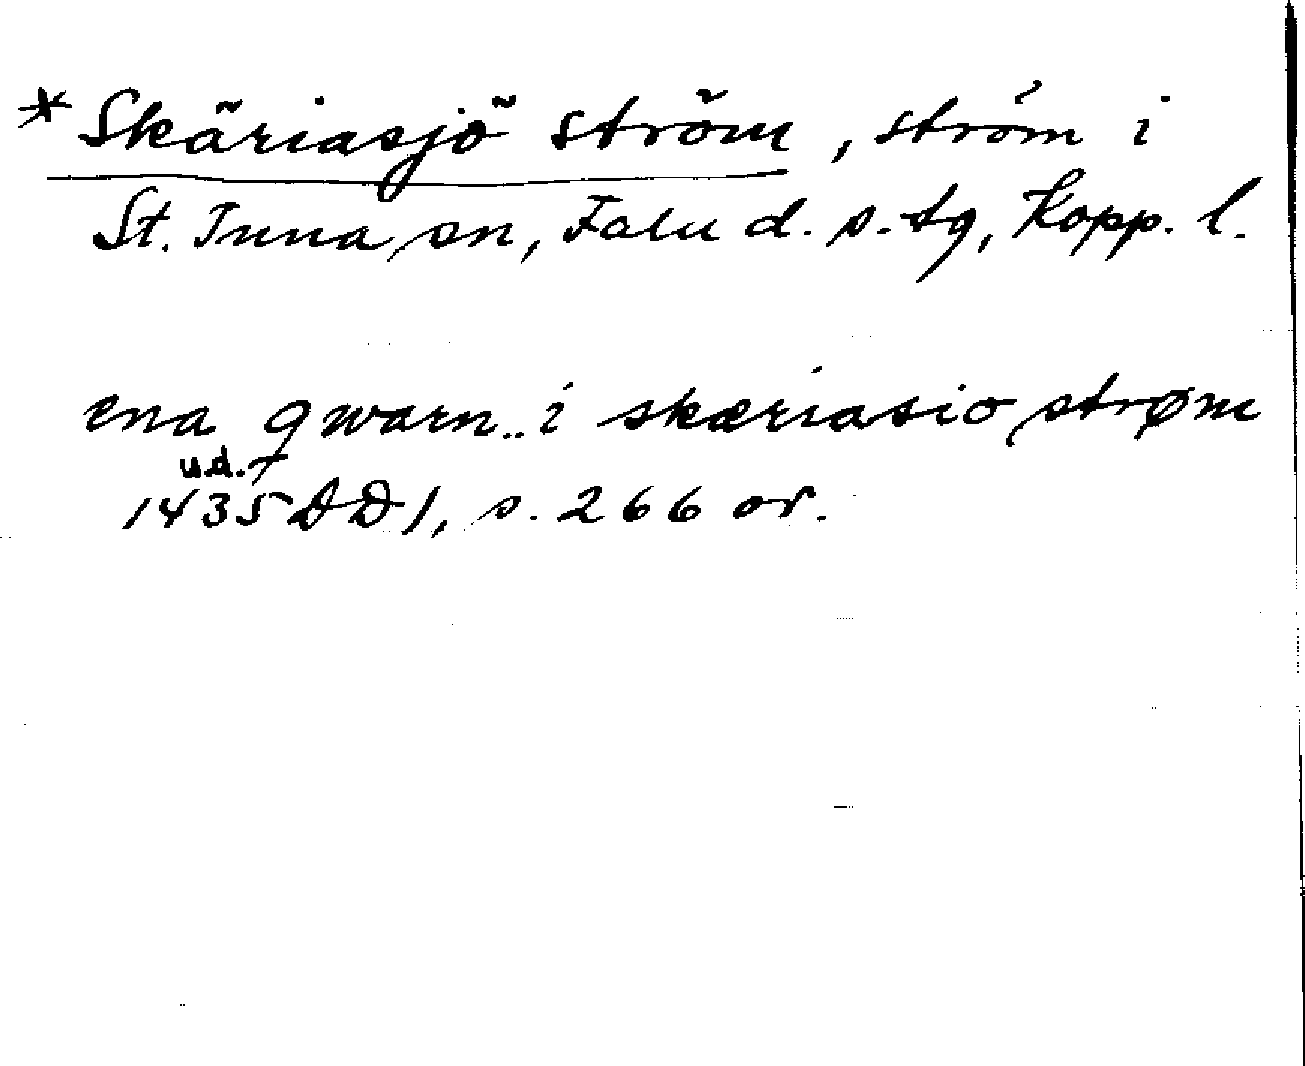 * Skäriasjö ström, ström i
St. Tuna sn, Falu d. s. tg, Kopp. l.
ena qwarn .. i skæriasio strøm
u.d.
1435 DD 1, s. 266 or.